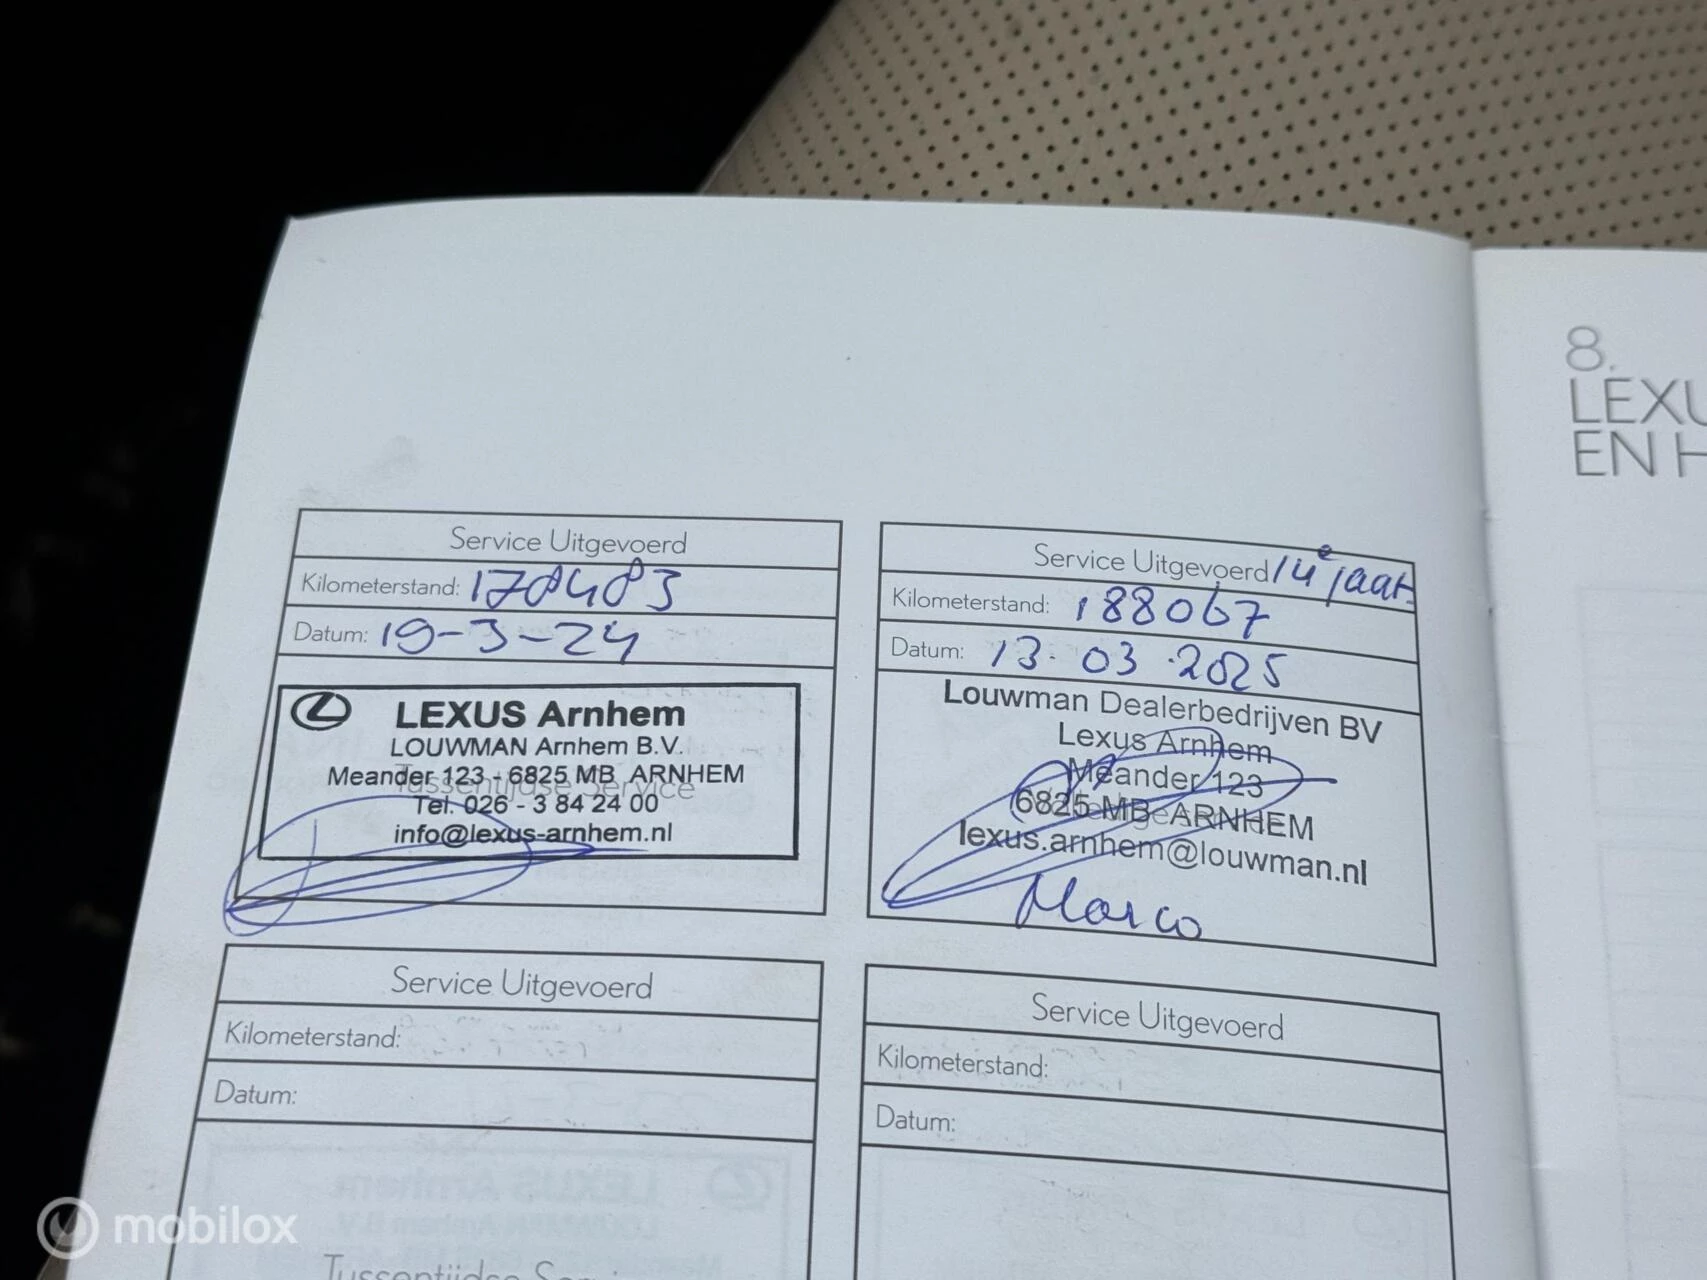 8.
LEXU
EN H
Service Uitgevoerd
Kilometerstand: 178483
Datum: 19-3-24
LEXUS Arnhem
LOUWMAN Arnhem B.V.
Meander 123 - 6825 MB ARNHEM
Tussentijdse Service
Tel. 026 - 3 84 24 00
info@lexus-arnhem.nl
Service Uitgevoerd 14e jaar.
Kilometerstand: 188067
Datum: 13.03.2025
Louwman Dealerbedrijven BV
Lexus Arnhem
Meander 123
6825 MB ARNHEM
lexus.arnhem@louwman.nl
Marco
Service Uitgevoerd
Kilometerstand:
Datum:
Service Uitgevoerd
Kilometerstand:
Datum:
Tussentijdse
mobilox